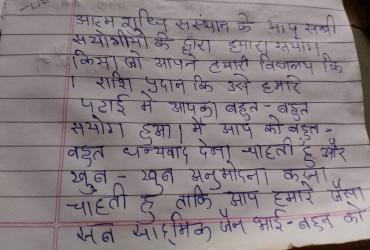 आत्म शुध्दि संस्थान के आप सभी
सयोगीयो के द्वारा हमारा सयोग
किया जो आपने हमारी विद्यालय कि
। राशि प्रदान कि उसे हमारे
पढाई में आपका बहुत - बहुत
सयोग हुआ। में आप को बहुत -
बहुत धन्यवाद देना चाहती हुँ और
खुब - खुब अनुमोदना करना
चाहती हु ताकि आप हमारे जैसा
सब साधर्मिक जैन भाई - बहन को